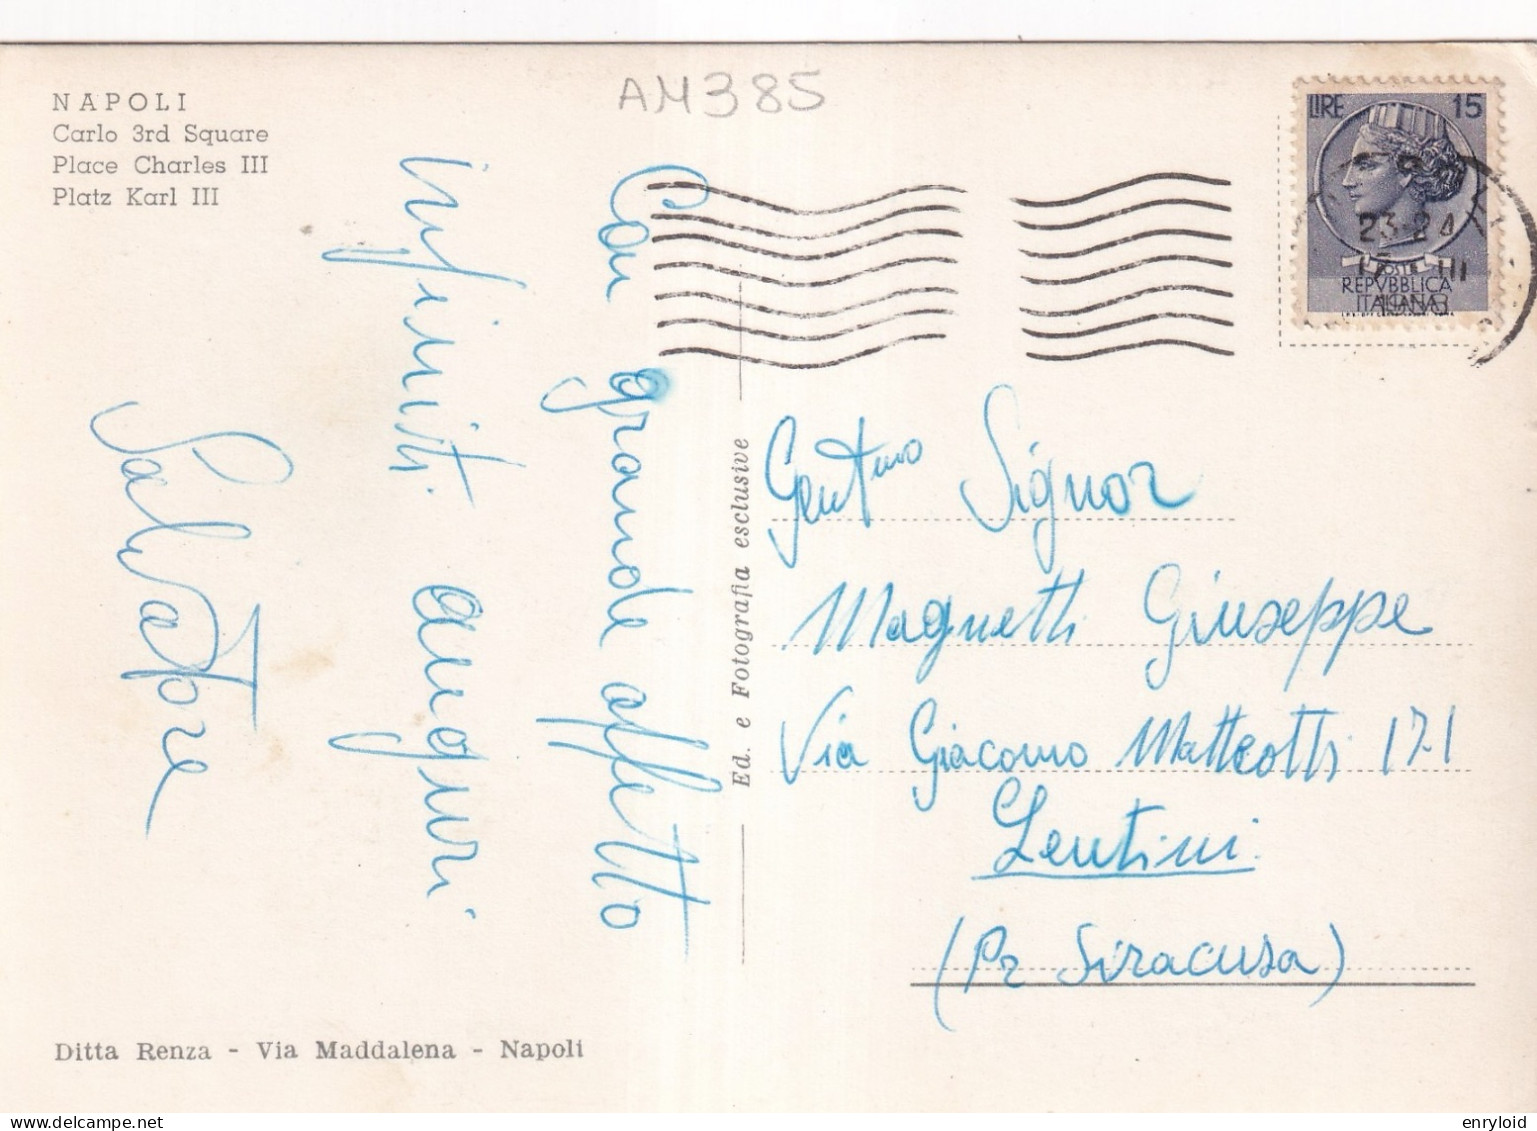 NAPOLI
Carlo 3rd Square
Place Charles III
Platz Karl III
AM385
LIRE 15
POSTE
REPVBBLICA
ITALIANA
23-24
Con grande affetto
infiniti auguri
Salvatore
Ed. e Fotografia esclusive
Gentmo Signor
Magnetti Giuseppe
Via Giacomo Matteotti 171
Lentini
(Pr Siracusa)
Ditta Renza - Via Maddalena - Napoli
enryloid